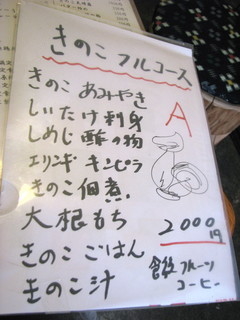 きのこ フルコース
A
きのこ あみやき
しいたけ刺身
しめじ 酢の物
エリンギ キンピラ
きのこ 佃煮
大根もち
きのこ ごはん
きのこ 汁
2000円
食後 フルーツ
コーヒー